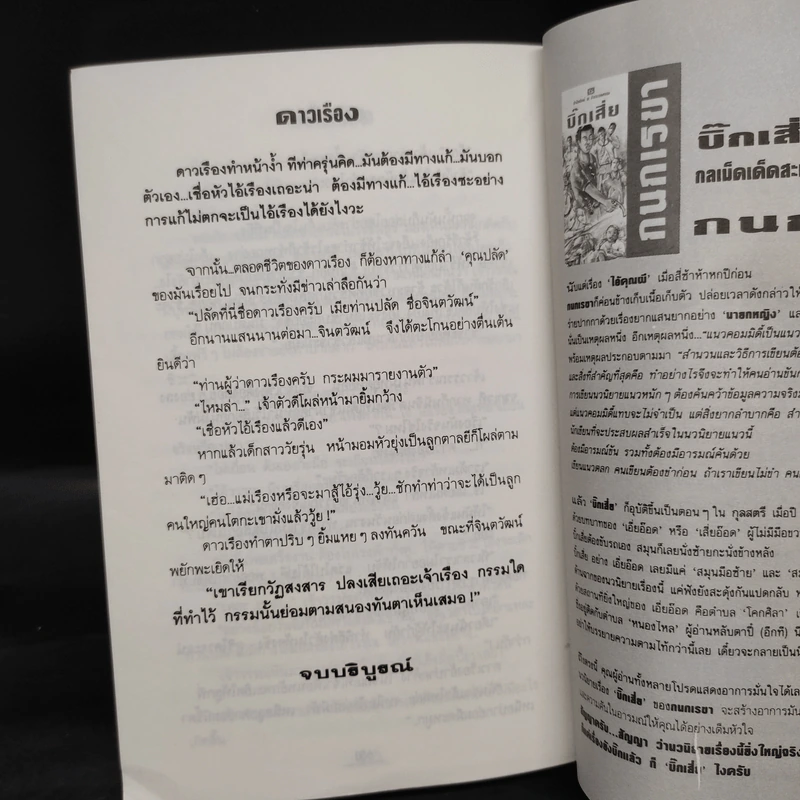 ดาวเรือง
ดาวเรืองทำหน้าง้ำ ทีท่าครุ่นคิด...มันต้องมีทางแก้...มันบอก
ตัวเอง...เชื่อหัวไอ้เรืองเถอะน่า ต้องมีทางแก้...ไอ้เรืองซะอย่าง
การแก้ไม่ตกจะเป็นไอ้เรืองได้ยังไงวะ
จากนั้น...ตลอดชีวิตของดาวเรือง ก็ต้องหาทางแก้ลำ ‘คุณปลัด’
ของมันเรื่อยไป จนกระทั่งมีข่าวเล่าลือกันว่า
“ปลัดที่นี่ชื่อดาวเรืองครับ เมียท่านปลัด ชื่อจินตวัฒน์”
อีกนานแสนนานต่อมา...จินตวัฒน์ จึงได้ตะโกนอย่างตื่นเต้น
ยินดีว่า
“ท่านผู้ว่าดาวเรืองครับ กระผมมารายงานตัว”
“ไหมล่า...” เจ้าตัวดีโผล่หน้ามายิ้มกว้าง
“เชื่อหัวไอ้เรืองแล้วดีเอง”
หากแล้วเด็กสาววัยรุ่น หน้ามอมหัวยุ่งเป็นลูกตาลยีก็โผล่ตาม
มาติด ๆ
“เฮ่อ...แม่เรืองหรือจะมาสู้ไอ้รุ่ง...วู้ย...ชักทำท่าว่าจะได้เป็นลูก
คนใหญ่คนโตกะเขามั่งแล้ววู้ย !”
ดาวเรืองทำตาปริบ ๆ ยิ้มแหย ๆ ลงทันควัน ขณะที่จินตวัฒน์
พยักพะเยิดให้
“เขาเรียกวัฏสงสาร ปลงเสียเถอะเจ้าเรือง กรรมใด
ที่ทำไว้ กรรมนั้นย่อมตามสนองทันตาเห็นเสมอ !”
จบบริบูรณ์
บิ๊กเสี่ย
กนกเรขา
บิ๊กเสี่
กลเม็ดเด็ด
กนก
นับแต่เรื่อง ‘ไอ้คุณผี’ เมื่อสี่ห้าหกปีก่อน
กนกเรขาก็ค่อนข้างเก็บเนื้อเก็บตัว ปล่อยเวลาดังกล่าวให้
ร่ายปากกาด้วยเรื่องยากแสนยากอย่าง ‘นายกหญิง’ แล
นั่นเป็นเหตุผลหนึ่ง อีกเหตุผลหนึ่ง...“แนวคอมมิดี้เป็นแนว
พร้อมเหตุผลประกอบตามมา “สำนวนและวิธีการเขียนต้อ
และสิ่งที่สำคัญที่สุดคือ ทำอย่างไรจึงจะทำให้คนอ่านขัน
การเขียนนวนิยายแนวหนัก ๆ ต้องค้นคว้าข้อมูลความจริง
แต่แนวคอมมิดี้แทบจะไม่จำเป็น แต่สิ่งยากลำบากคือ สำ
นักเขียนที่จะประสบผลสำเร็จในนวนิยายแนวนี้
ต้องมีอารมณ์ขัน รวมทั้งต้องมีอารมณ์ค้นด้วย
เขียนแนวตลก คนเขียนต้องขำก่อน ถ้าเราเขียนไม่ขำ คน
แล้ว ‘บิ๊กเสี่ย’ ก็อุบัติขึ้นเป็นตอน ๆ ใน กุลสตรี เมื่อปี
ด้วยบทบาทของ ‘เอี่ยอ๊อด’ หรือ ‘เสี่ยอ๊อด’ ผู้ไม่มีมือ
บิ๊กเสี่ยต้องขับรถเอง สมุนก็เลยนั่งซ้ายกะนั่งข้างหลัง
บิ๊กเสี่ย อย่าง เอี่ยอ๊อด เลยมีแค่ ‘สมุนมือซ้าย’ และ
ด้านฉากของนวนิยายเรื่องนี้ แค่ฟังยังสะดุ้งกันแปดกลับ
ด้วยสถานที่ยิ่งใหญ่ของ เอี่ยอ๊อด คือตำบล ‘โคกศิลา’ เ
ซึ่งอยู่ติดกับตำบล ‘หนองไหล’ ผู้อ่านหลับตาปี๋ (อีกที) นึ
อย่าให้บรรยายความตามไท้กว่านี้เลย เดี๋ยวจะกลายเป็น
ถึงตรงนี้ คุณผู้อ่านทั้งหลายโปรดแสดงอาการมั่นใจได้เล
นวนิยายเรื่อง ‘บิ๊กเสี่ย’ ของกนกเรขา จะสร้างอาการมัน
และความดันในอารมณ์ให้คุณได้อย่างเต็มหัวใจ
สัญญาครับ...สัญญา ว่านวนิยายเรื่องนี้ยิ่งใหญ่จริง
ก็แค่เรื่องยังบิ๊กแล้ว ก็ ‘บิ๊กเสี่ย’ ไงครับ